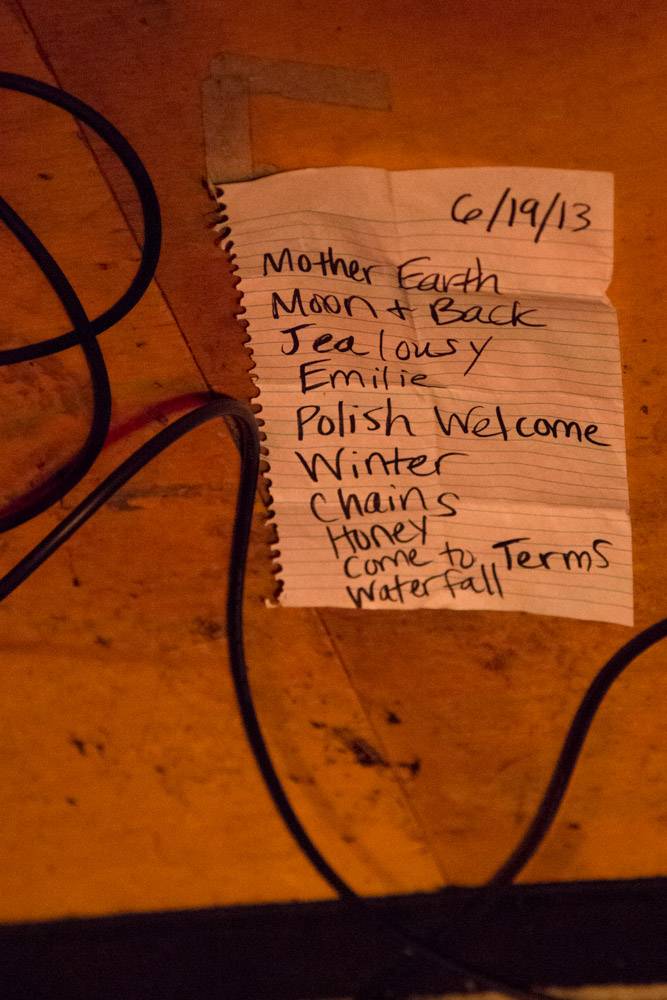 6/19/13
Mother Earth
Moon + Back
Jealousy
Emilie
Polish Welcome
Winter
Chains
Honey
Come to Terms
Waterfall